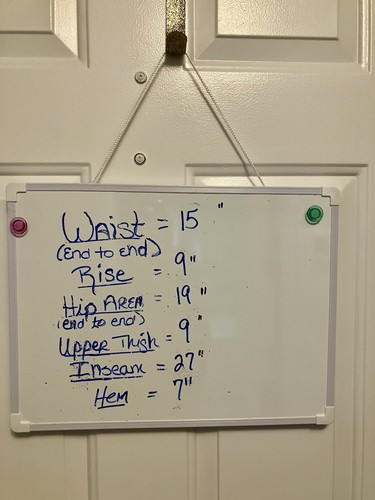 Waist = 15"
(End to end)
Rise = 9"
Hip AREA = 19"
(end to end)
Upper Thigh = 9"
Inseam = 27"
Hem = 7"